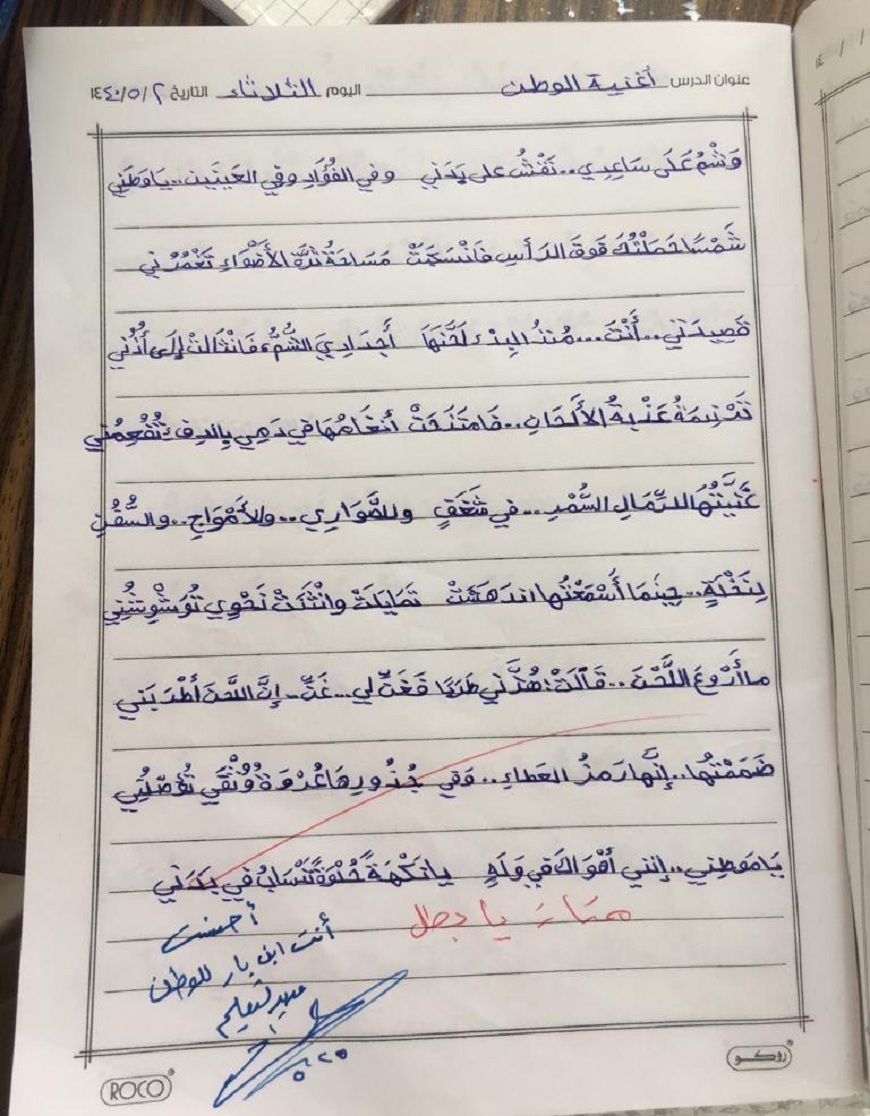 عنوان الدرس أغنية الوطن اليوم الثلاثاء التاريخ ١٤٤٠/٥/٢
وَشْمٌ عَلَى سَاعِدِي.. نَقْشٌ على بَدَنِي وفي الفُؤَادِ وفي العَينَينِ.. يَا وَطَنِي
شَمْسًا حَمَلْتُكَ فَوقَ الرَأسِ فَانْسَكَبَتْ مَسَاحَةٌ ثَرَّةُ الأَضْوَاءِ تَغْمُرُنِي
قَصِيدَتِي.. أَنْتَ... مُنْذُ البِدْءِ لَحَّنَهَا أَجدَادِيَ الشُّمُّ، فَانْثَالَتْ إِلَى أُذُنِي
تَرْنِيمَةً عَذْبَةَ الأَلْحَانِ.. فَامتَزَجَتْ أَنغَامُهَا في دَمِي بِالدِفءِ تُفْعِمُنِي
غَنَّيْتُهَا للرِّمَالِ السُّمْرِ.. في شَغَفٍ وللصَّوَارِي.. وللأَمْوَاجِ.. والسُّفُنِ
لِنَخْلَةٍ.. حِينَمَا أَسْمَعْتُها اندَهَشَتْ تَمَايَلَتْ وانْثَنَتْ نَحْوِي تُوَشْوِشُنِي
ما أَرْوعَ اللَّحْنَ.. قَالَتْ: هُزَّنِي طَرَبًا فَغَنِّ لي.. غَنِّ.. إنَّ اللَّحنَ أَطْرَبَنِي
ضَمَمْتُها.. إنَّها رَمزُ العَطاءِ.. وَفي جُذُورِهَا عُرْوَةٌ وُثْقَى تُوَصِّلُنِي
يَا مَوطِنِي.. إنني أَهْوَاكَ في وَلَهٍ يا نَكْهَةً حُلْوَةً تَنْسَابُ في بَدَنِي
ممتاز يا بطل
أحسنت
أنت ابن بار للوطن
ROCO
روكو